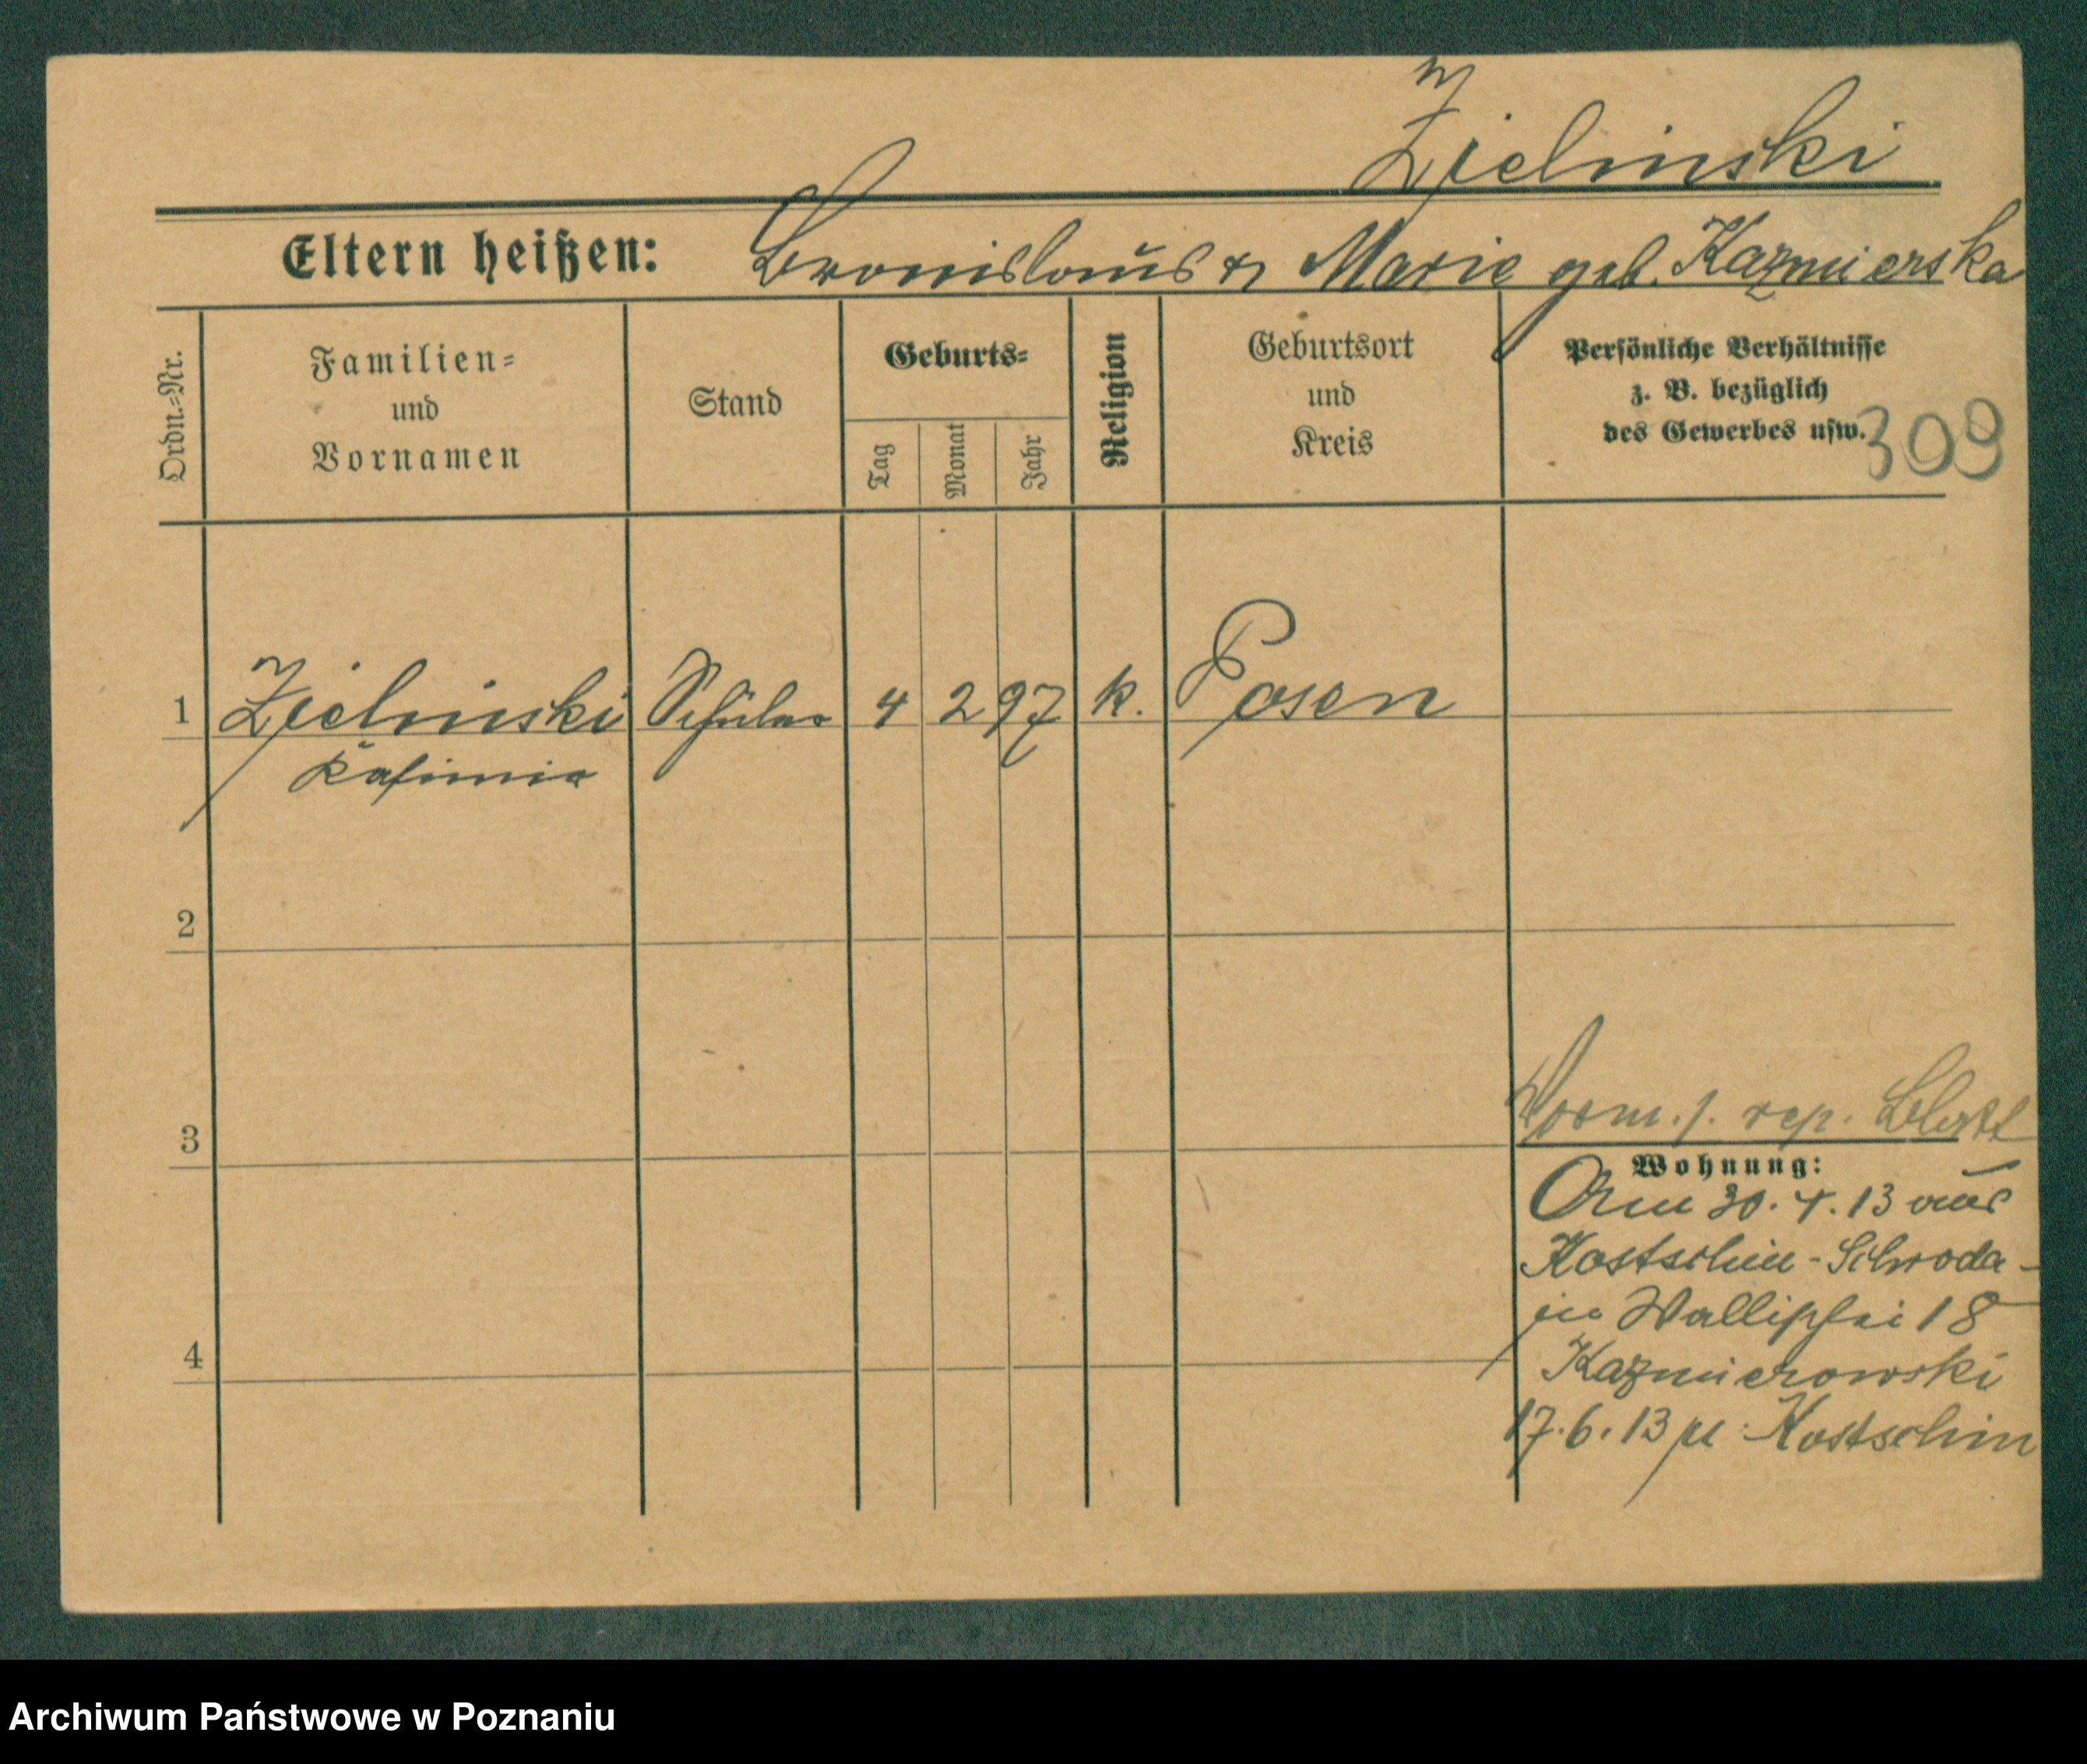 Zielinski
Eltern heißen: Bronislaus & Marie geb. Kazmierska
Ordn.=Nr.
Familien=
und
Vornamen
Stand
Geburts=
Tag
Monat
Jahr
Religion
Geburtsort
und
Kreis
Persönliche Verhältnisse
z. B. bezüglich
des Gewerbes usw.
309
1 Zielinski Schüler 4 2 97 k. Posen
Kasimir
2
3
4
rep. Blatt
Wohnung:
30. 4. 13 aus
Kostschin - Schroda -
in Wallischei 18
Kazmierowski
17. 6. 13 Kostschin
Archiwum Państwowe w Poznaniu